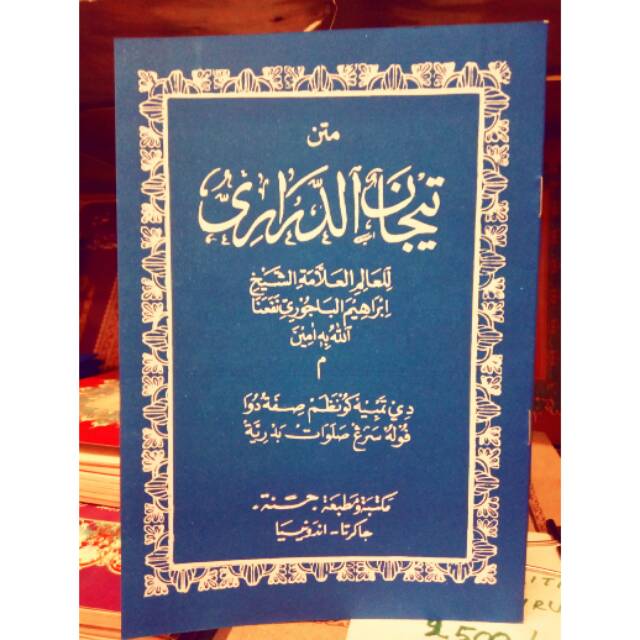 متن
تيجان الدراري
للعالم العلامة الشيخ
إبراهيم الباجوري نفعنا
الله به امين
م
دي تمبه كو نظم صفة دوا
فوله سرڠ صلوات بدرية
مكتبة ومطبعة حسنة .
جاكرتا - اندونيسيا
2500